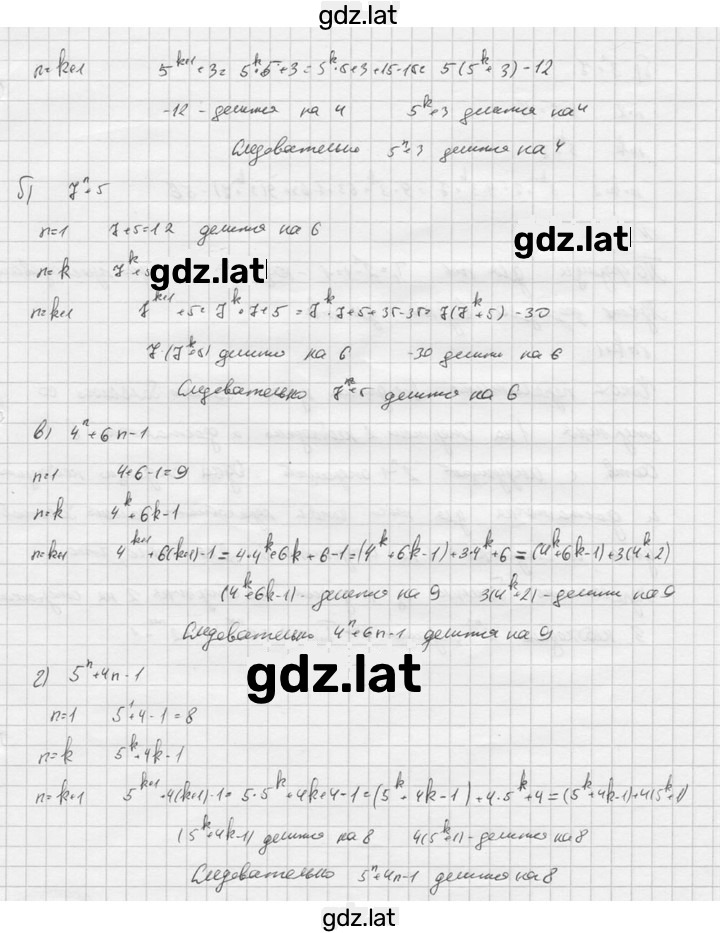 gdz.lat
n=k+1 5^{k+1}+3= 5^k·5+3=5^k·5+3+15-15= 5(5^k+3)-12
-12 - делится на 4 5^k+3 делится на 4
Следовательно 5^n+3 делится на 4
б) 7^n+5
n=1 7+5=12 делится на 6
gdz.lat
n=k 7^k+5
gdz.lat
n=k+1 7^{k+1}+5= 7^k·7+5 = 7^k·7+5+35-35= 7(7^k+5)-30
7·(7^k+5) делится на 6 -30 делится на 6
Следовательно 7^n+5 делится на 6
в) 4^n+6n-1
n=1 4+6-1=9
n=k 4^k+6k-1
n=k+1 4^{k+1}+6(k+1)-1=4·4^k+6k+6-1=(4^k+6k-1)+3·4^k+6=(4^k+6k-1)+3(4^k+2)
(4^k+6k-1)- делится на 9 3(4^k+2)-делится на 9
Следовательно 4^n+6n-1 делится на 9
г) 5^n+4n-1
gdz.lat
n=1 5^1+4-1=8
n=k 5^k+4k-1
n=k+1 5^{k+1}+4(k+1)-1= 5·5^k+4k+4-1=(5^k+4k-1)+4·5^k+4=(5^k+4k-1)+4(5^k+1)
(5^k+4k-1) делится на 8 4(5^k+1)-делится на 8
Следовательно 5^n+4n-1 делится на 8
gdz.lat